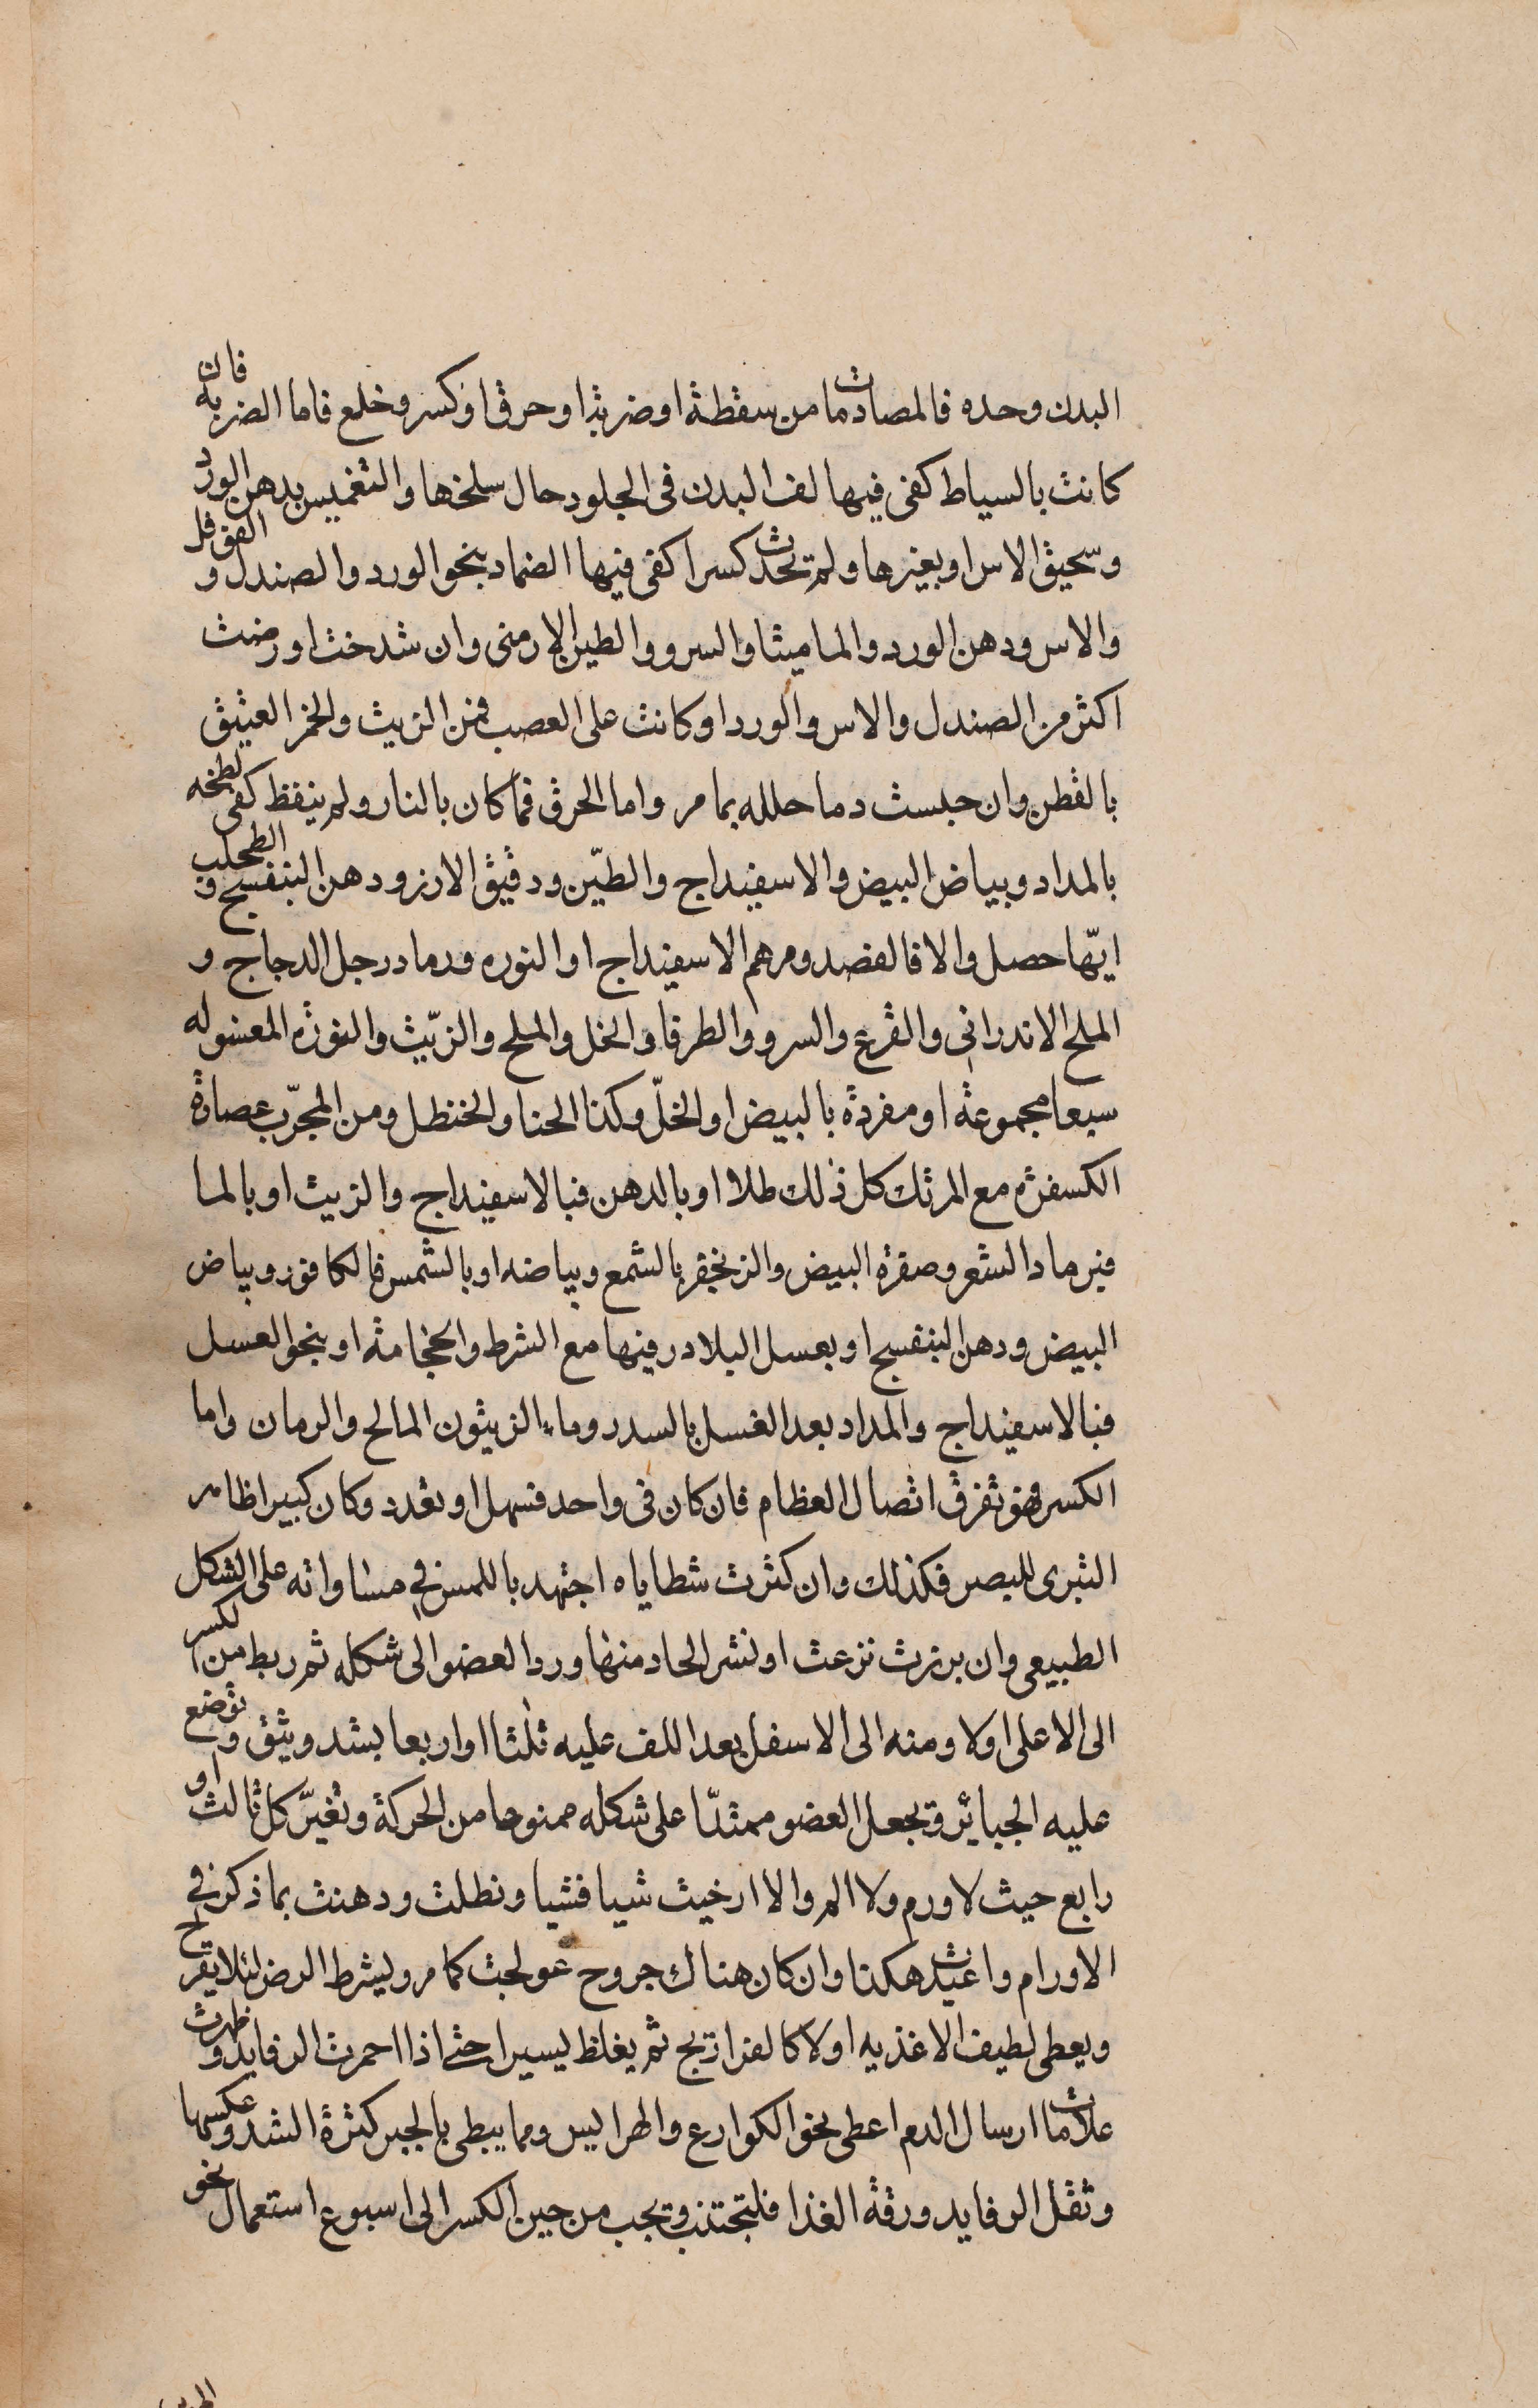 البدن وحده فالمصادمات اما من سقطة او ضربة او حرق او كسر وخلع فاما الضربة فان
كانت بالسياط كفى فيها لف البدن فى الجلود حال سلخها والتغميس بدهن الورد
وسحيق الاس او بغيرها ولم تحدث كسرا كفى فيها الضماد بنحو الورد والصندل والفوفل
والاس ودهن الورد والماميثا والسرو والطين الارمنى وان شدخت او رضت
اكثر من الصندل والاس والورد او كانت على العصب فمن الزيت والخمر العتيق
بالقطن وان حبست دما حلله بما مر واما الحرق فما كان بالنار ولم ينفظ كفى لطخه
بالمداد وبياض البيض والاسفيداج والطين ودقيق الارز ودهن البنفسج والطحلب
ايّها حصل والا فالفصد ومرهم الاسفيداج او النوره ورماد رجل الدجاج و
الملح الاندرانى والقرع والسرو والطرفا والخل والملح والزيّت والنورة المغسوله
سبعا مجموعة او مفردة بالبيض او الخلّ وكذا الحنا والحنظل ومن المجرّب عصارة
الكسفرة مع المرتك كل ذلك طلا او بالدهن فبالاسفيداج والزيت او بالما
فبرماد الشعر وصفرة البيض والزنجفر بالشمع وبياضه او بالشمس فالكافور وبياض
البيض ودهن البنفسج او بعسل البلادر فيها مع الشرط والحجامة او بنحو العسل
فبالاسفيداج والمداد بعد الغسل بالسدر وماء الزيتون المالح والرمان واما
الكسر فهو تفرق اتصال العظام فان كان فى واحد فسهل او تعدد وكان كبيرا ظاهر
التبرى للبصر فكذلك وان كثرت شظاياه اجتهد باللمس في مساواته على الشكل
الطبيعى وان برزت نزعت او نشر الحاد منها ورد العضو الى شكله ثم ربط من الكسر
الى الاعلى اولا ومنه الى الاسفل بعد اللف عليه ثلثا او اربعا بشد وثيق وتوضع
عليه الجبائر وتجعل العضو ممتدّا على شكله ممنوعا من الحركة وتغيّر كل ثالث او
رابع حيث لا ورم ولا الم والا ارخيت شيا فشيا ونطلت ودهنت بما ذكر في
الاورام واعيدت هكذا وان كان هناك جروح عولجت كما مر وليشرط الرض لئلا يقرح
ويعطى لطيف الاغذيه اولا كالفراريج ثم يغلظ يسيرا حتى اذا احمرت الرفايد وظهرت
علامات ارسال الدم اعطى نحو الكوارع والهرايس ومما يبطى بالجبر كثرة الشد وعكسها
وثقل الرفايد ورقة الغذا فلتجتنب وتجب من حين الكسر الى اسبوع استعمال نحو